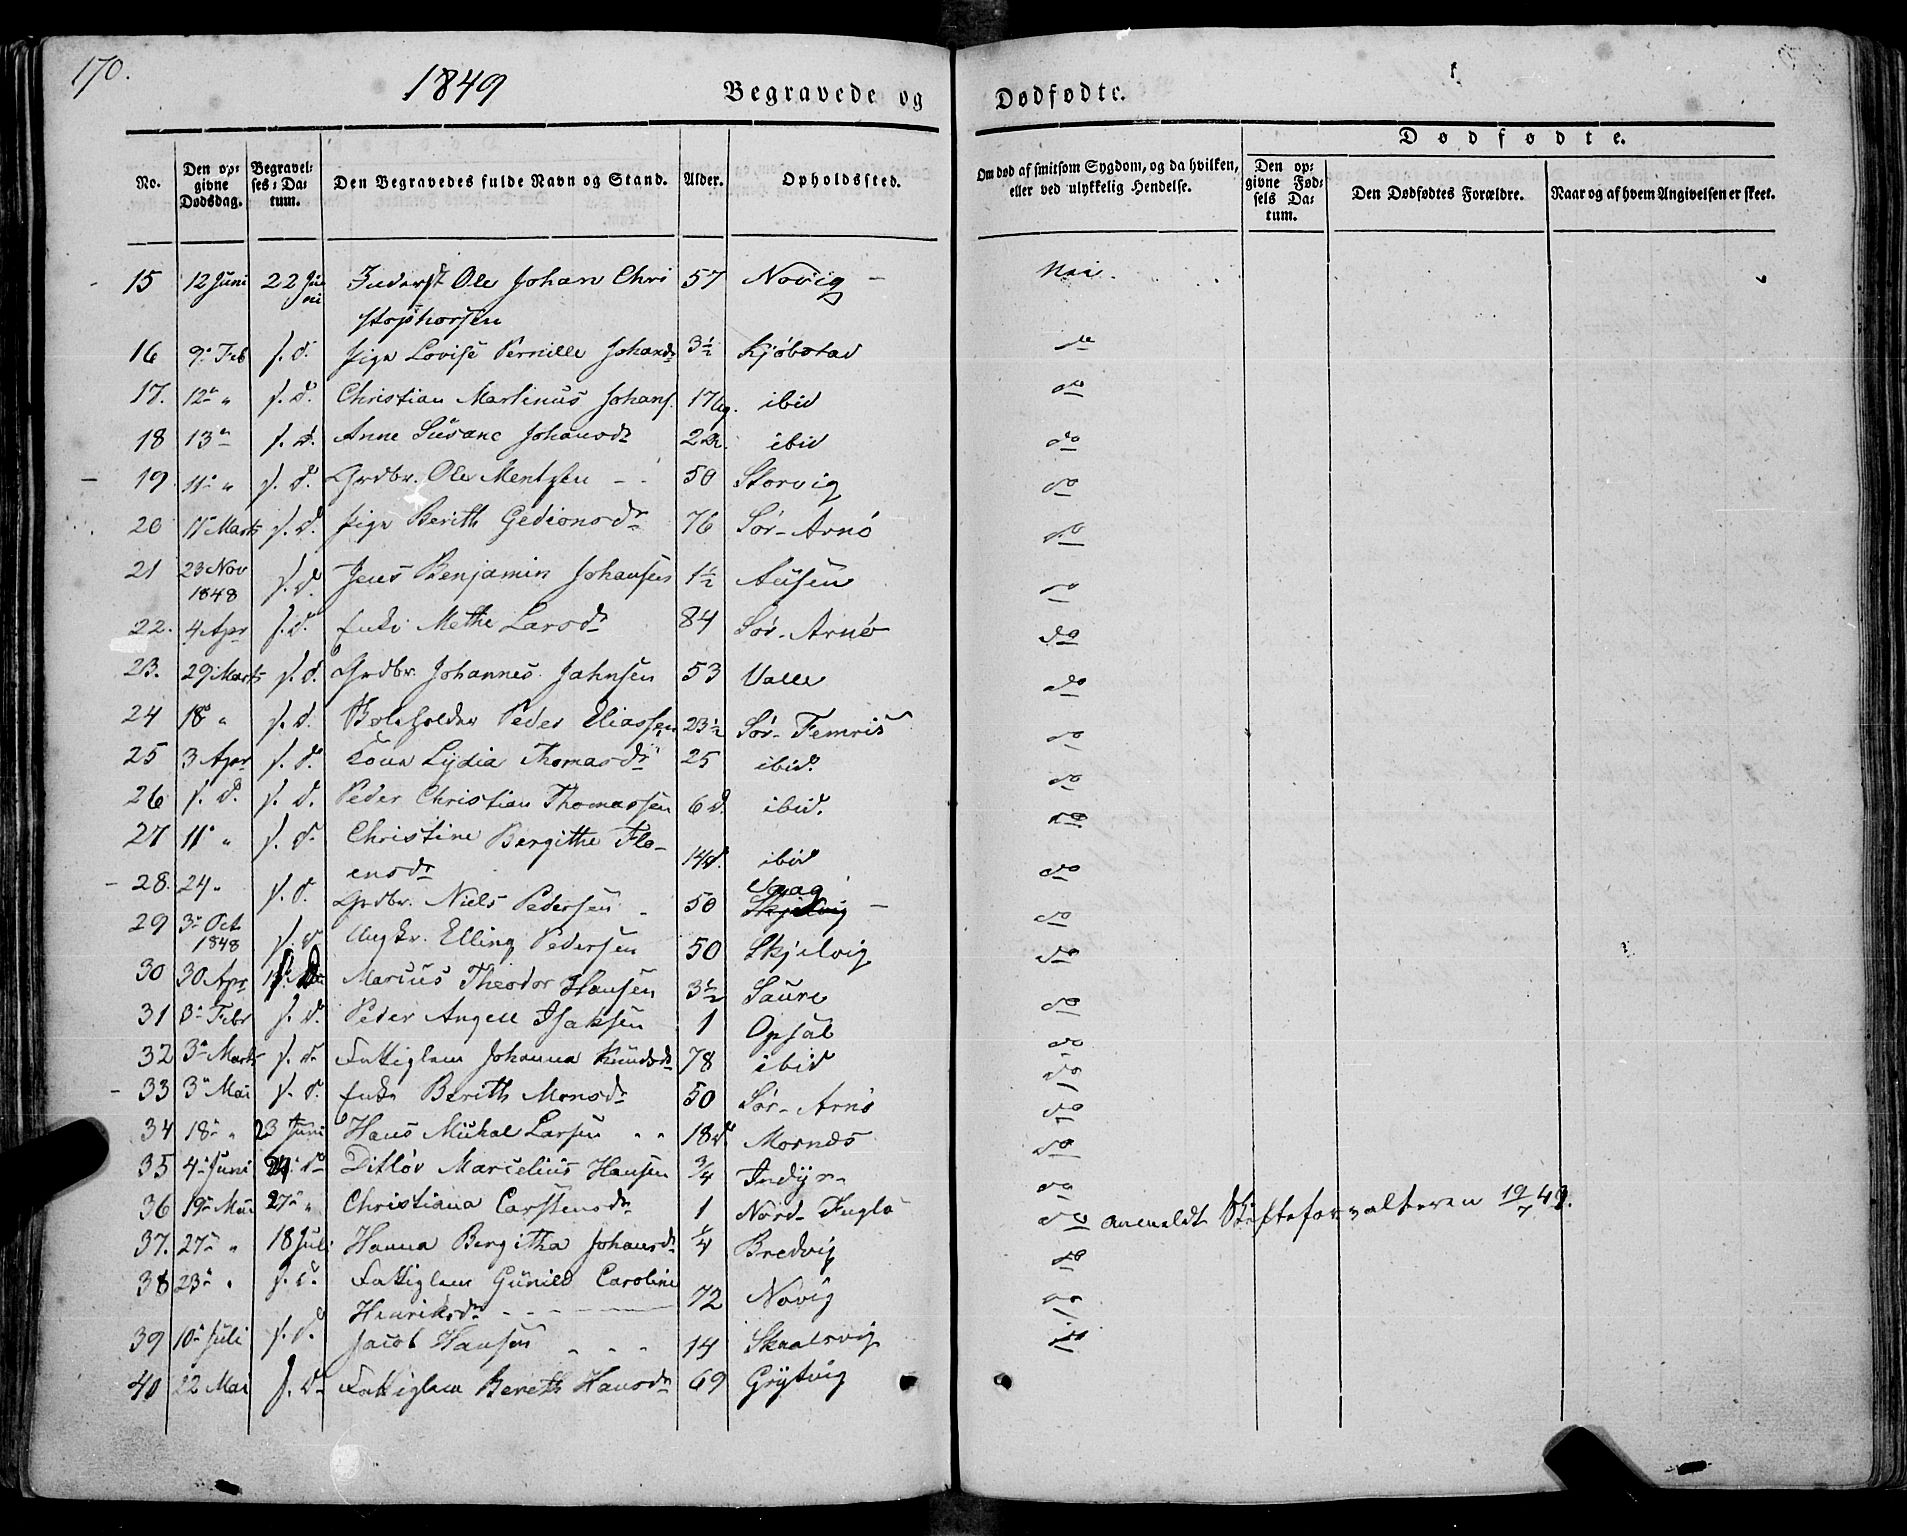 170.
1849
Begravede og
Dødfødte.
No.
Den op-
givne
Dødsdag.
Begravel-
ses-Da-
tum.
Den Begravedes fulde Navn og Stand.
Alder.
Opholdssted.
Om død af smitsom Sygdom, og da hvilken,
eller ved ulykkelig Hendelse.
Dødfødte.
Den op-
givne Fød-
sels Da-
tum.
Den Dødfødtes Forældre.
Naar og af hvem Angivelsen er skeet.
15 12 Juni 22 Ju Inderst Ole Johan Chri 57 Novig - Nei.
ni stophersen
16 9de Feb s. d. Pige Lovise Pernille Johansdr 3½ Kjøbstad do
17. 12te " s. d. Christian Martinus Johans. 17 ibid do
18 13de s. d. Anne Susane Johansdr 2 ibid do
19 11te " s. d. Grdbr. Ole Mentzen - - 50 Storvig do
20 Marts s. d. Pige Berith Gedionsdr 76 Sør-Arnø do
21 23 Nov s. d. Jens Benjamin Johansen 1½ Ausen do
1848
22. 4 Apr s. d. Enke Methe Larsdr 84 Sør-Arnø do
23. 29 Marts s. d. Grdbr. Johannes Jahnsen 53 Valle do
24 18 " s. d. Peder Eliassen 23½ Sør-Femris do
25 3 Apr s. d. Kone Lydia Thomasdr 25 ibid. do
26 s. d. s. d. Peder Christian Thomassen 6 d. ibid. do
27 11 " s. d. Christine Bergithe Flo- 14 d. ibid do
ensdr
28. 24 " s. d. Grdbr. Niels Pedersen 50 Skjelvig - do
29 3 Oct s. d. Ungkr. Elling Pedersen 50 Skjelvig do
1848
30 30 Apr s. d. Marcus Theodor Hansen 3½ Saura do
31 3 Febr s. d. Peder Angell Isaksen 1 Opsal do
32 3 Marts s. d. Fattiglem Johanna Knudsdr 78 ibid do
33 3 Mai s. d. Enke Berith Monsdr 50 Sør-Arnø do
34 18 " 23 Juni Hans Mikal Larsen " " 18 d. Mornæs do
35 4 Juni 24 do Ditløv Marcelius Hansen ¾ Indyr do
36 19 Mai 27 " Christiana Carstensdr 1 Nord-Fuglø do anmeldt Skifteforvalteren 19/7 49.
37. 27 " 18 Juli Hanna Bergitha Johansdr ¼ Bredvig do
38 23 " s. d. Fattiglem Gunild Caroline 72 Novig do
Henriksdr - - -
39 10 Juli s. d. Jacob Hansen " " " 14 Skaalsvig do
40 22 Mai s. d. Fattiglem Bereth Hansdr 69 Grytvig